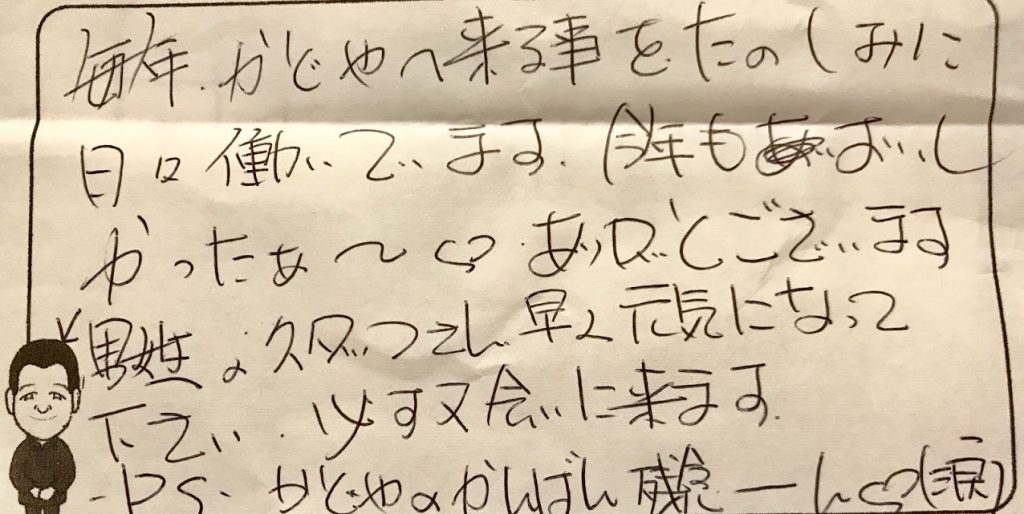 毎年.かどやへ来る事をたのしみに
日々働いています.今年もおいし
かったぁ〜♡.ありがとうございます
男性のスタッフさん早く元気になって
下さい.必ず又会いに来ます.
-PS-かどやのかんばん残念ーん♡(涙)